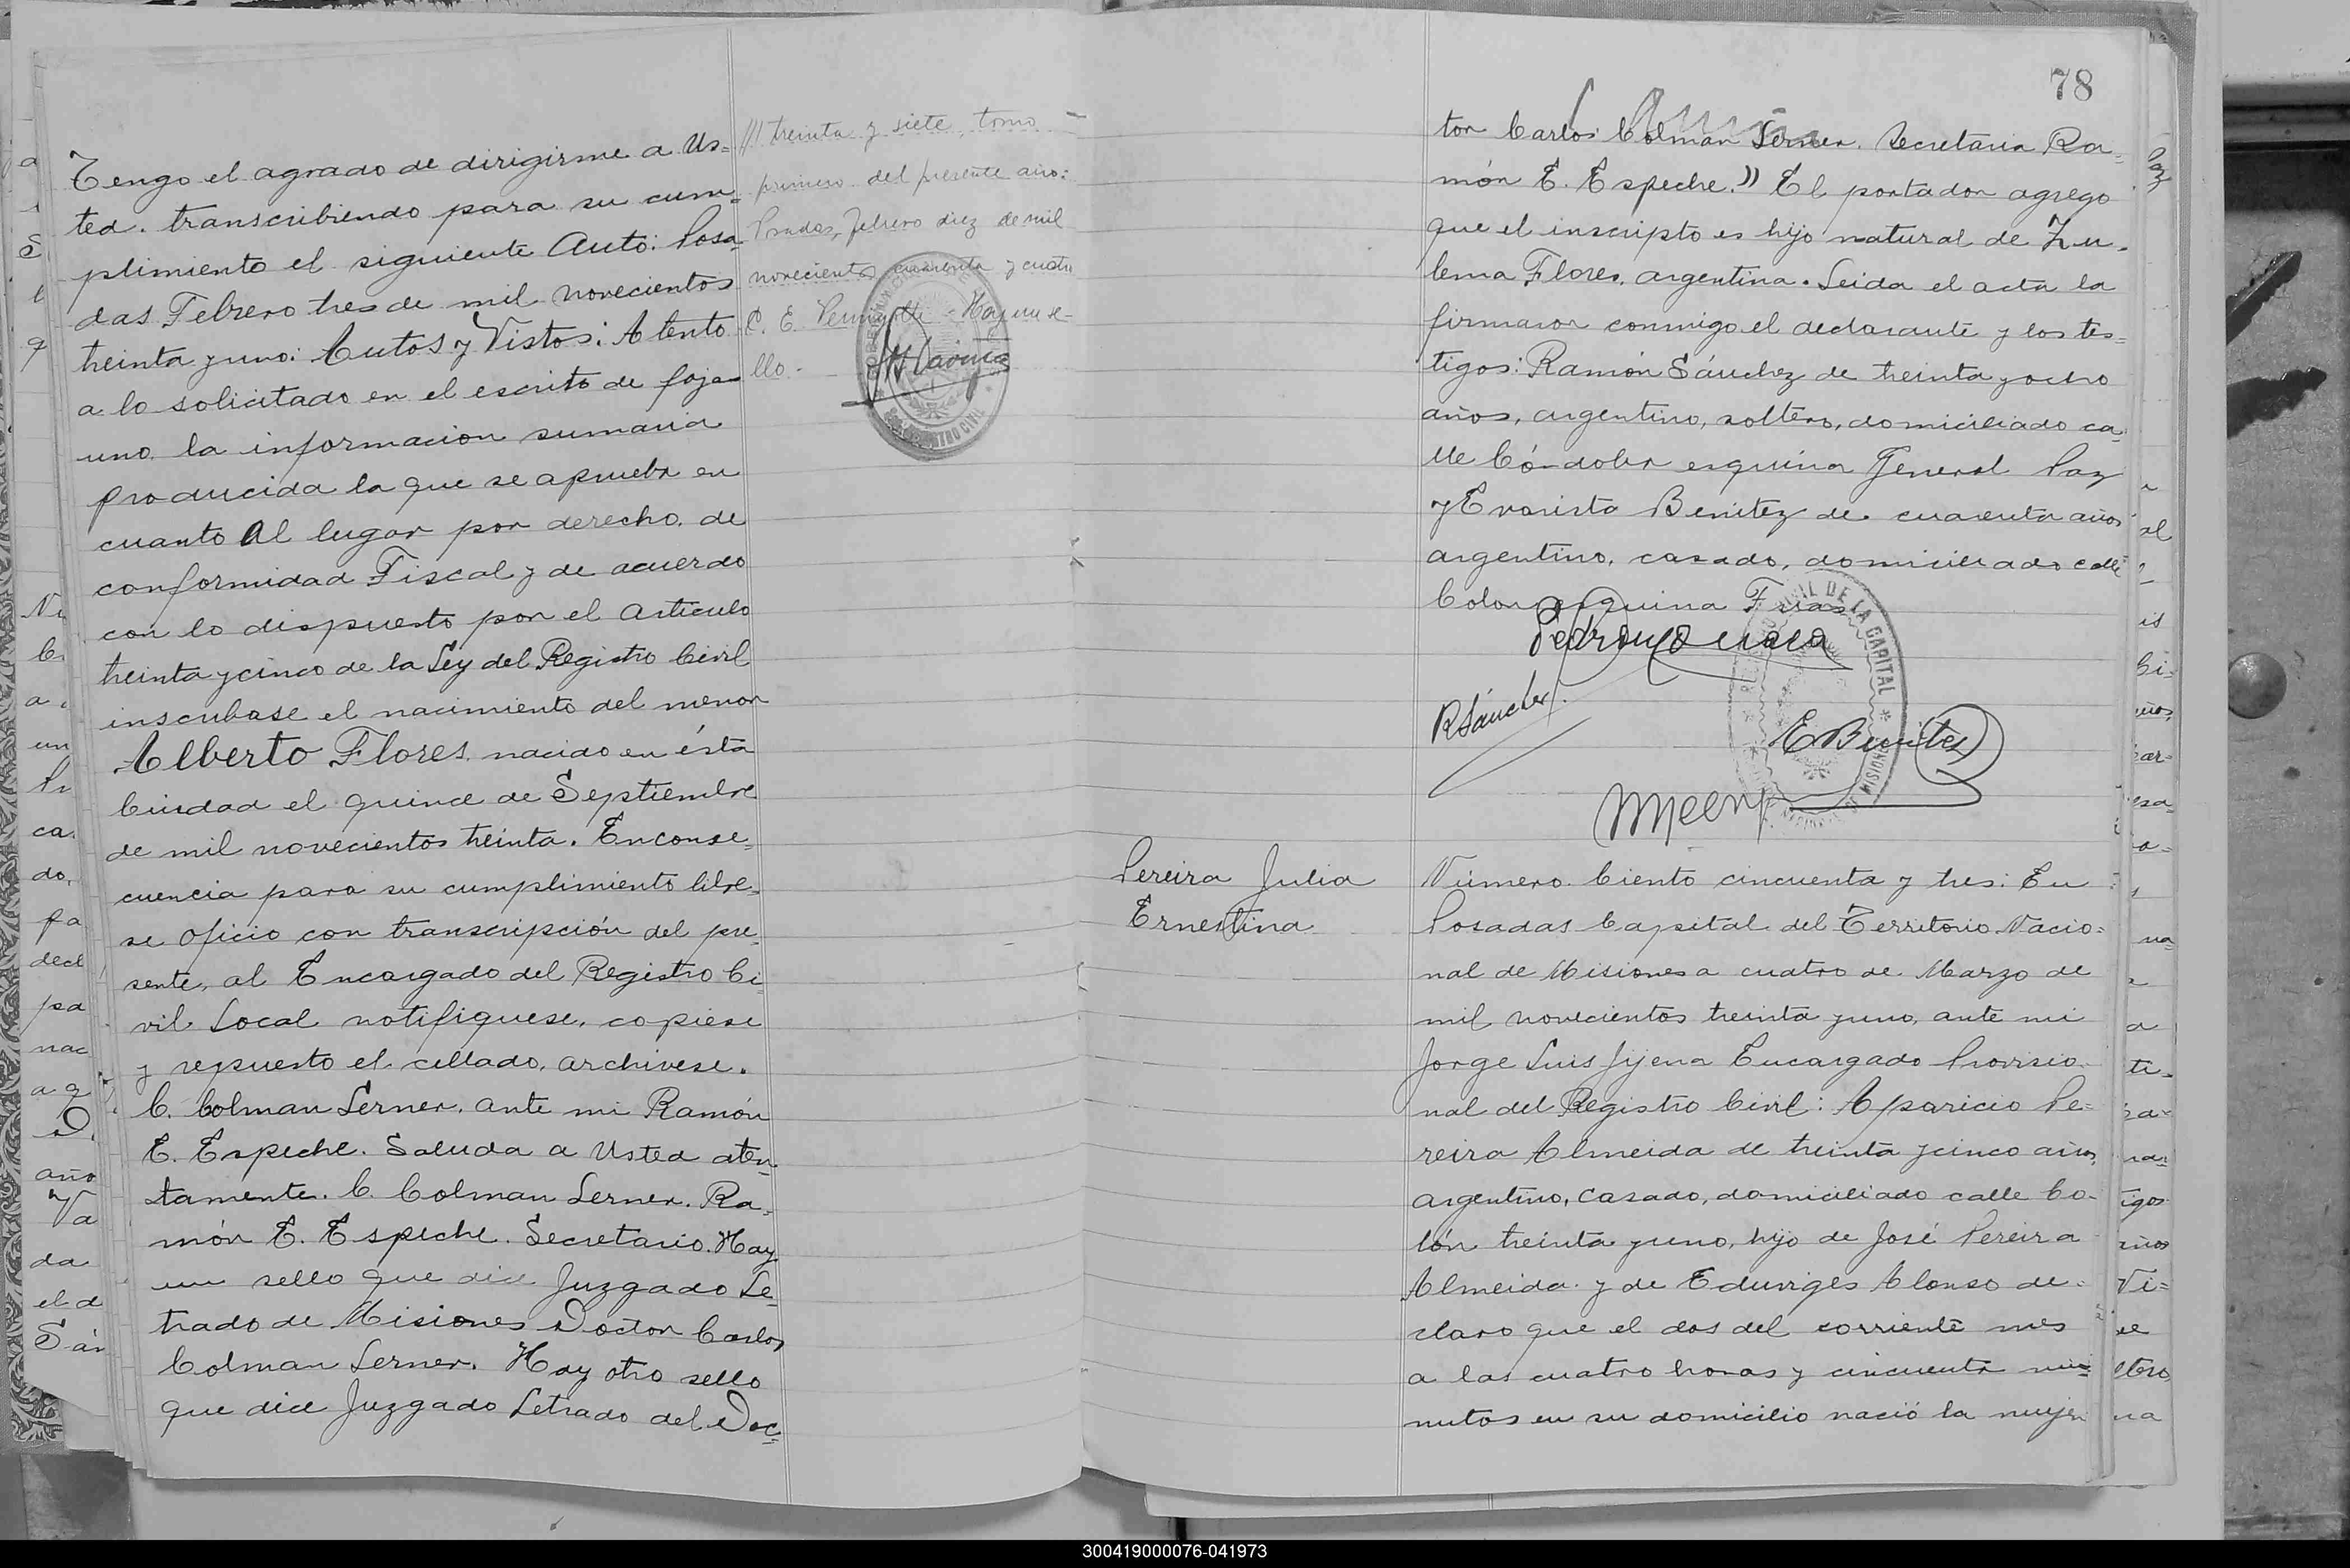 Tengo el agrado de dirigirme a Us=
ted. transcribiendo para su cum=
plimiento el siguiente Auto: Posa
das Febrero tres de mil novecientos
treinta y uno: Autos y Vistos: Atento
a lo solicitado en el escrito de fojas
uno la informacion sumaria
producida la que se aprueba en
cuanto al lugar por derecho. de
conformidad Fiscal y de acuerdo
con lo dispuesto por el Articulo
treinta y cinco de la Ley del Registro Civil
inscribase el nacimiento del menor
Alberto Flores. nacido en ésta
Ciudad el quince de Septiembre
de mil novecientos treinta. Enconse=
cuencia para su cumplimiento libre=
se oficio con transcripción del pre=
sente, al Encargado del Registro Ci
vil Local notifiquese, copiese
y repuesto el cellado, archivese.
C. Colman Lerner. ante mi Ramón
E. Espeche. Saluda a Usted aten
tamente. C. Colman Lerner. Ra=
món E. Espeche. Secretario. Hay
un sello que dice Juzgado Le=
trado de Misiones Doctor Carlos
Colman Lerner. Hay otro sello
que dice Juzgado Letrado del Doc=
/// treinta y siete, tomo
primero del presente año:
Posadas, febrero diez de mil
novecientos cuarenta y cuatro
C. E. Hay un se-
llo.-
78
tor Carlos Colman Lerner. Secretaria Ra=
món E. Espeche.)) El portador agrego
que el inscripto es hijo natural de Zu=
lema Flores, argentina. Leida el acta la
firmaron conmigo el declarante y los tes=
tigos: Ramón Sánchez de treinta y ocho
años, argentino, soltero, domiciliado ca
lle Córdoba esquina General Paz
y Evaristo Benitez de cuarenta años
argentino, casado, domiciliado calle
Colon esquina Frias
CIVIL DE LA CAPITAL
RSánchez
EBenitez
Pereira Julia
Ernestina
Número Ciento cincuenta y tres: En
Posadas Capital del Territorio Nacio=
nal de Misiones a cuatro de Marzo de
mil novecientos treinta y uno, ante mi
Jorge Luis Jijena Encargado Provisio=
nal del Registro Civil: Aparicio Pe=
reira Almeida de treinta y cinco años,
argentino, casado, domiciliado calle Co=
lón treinta y uno, hijo de José Pereira
Almeida y de Eduviges Alonso de=
claro que el dos del corriente mes
a las cuatro horas y cincuenta mi=
nutos en su domicilio nació la mujer
300419000076-041973